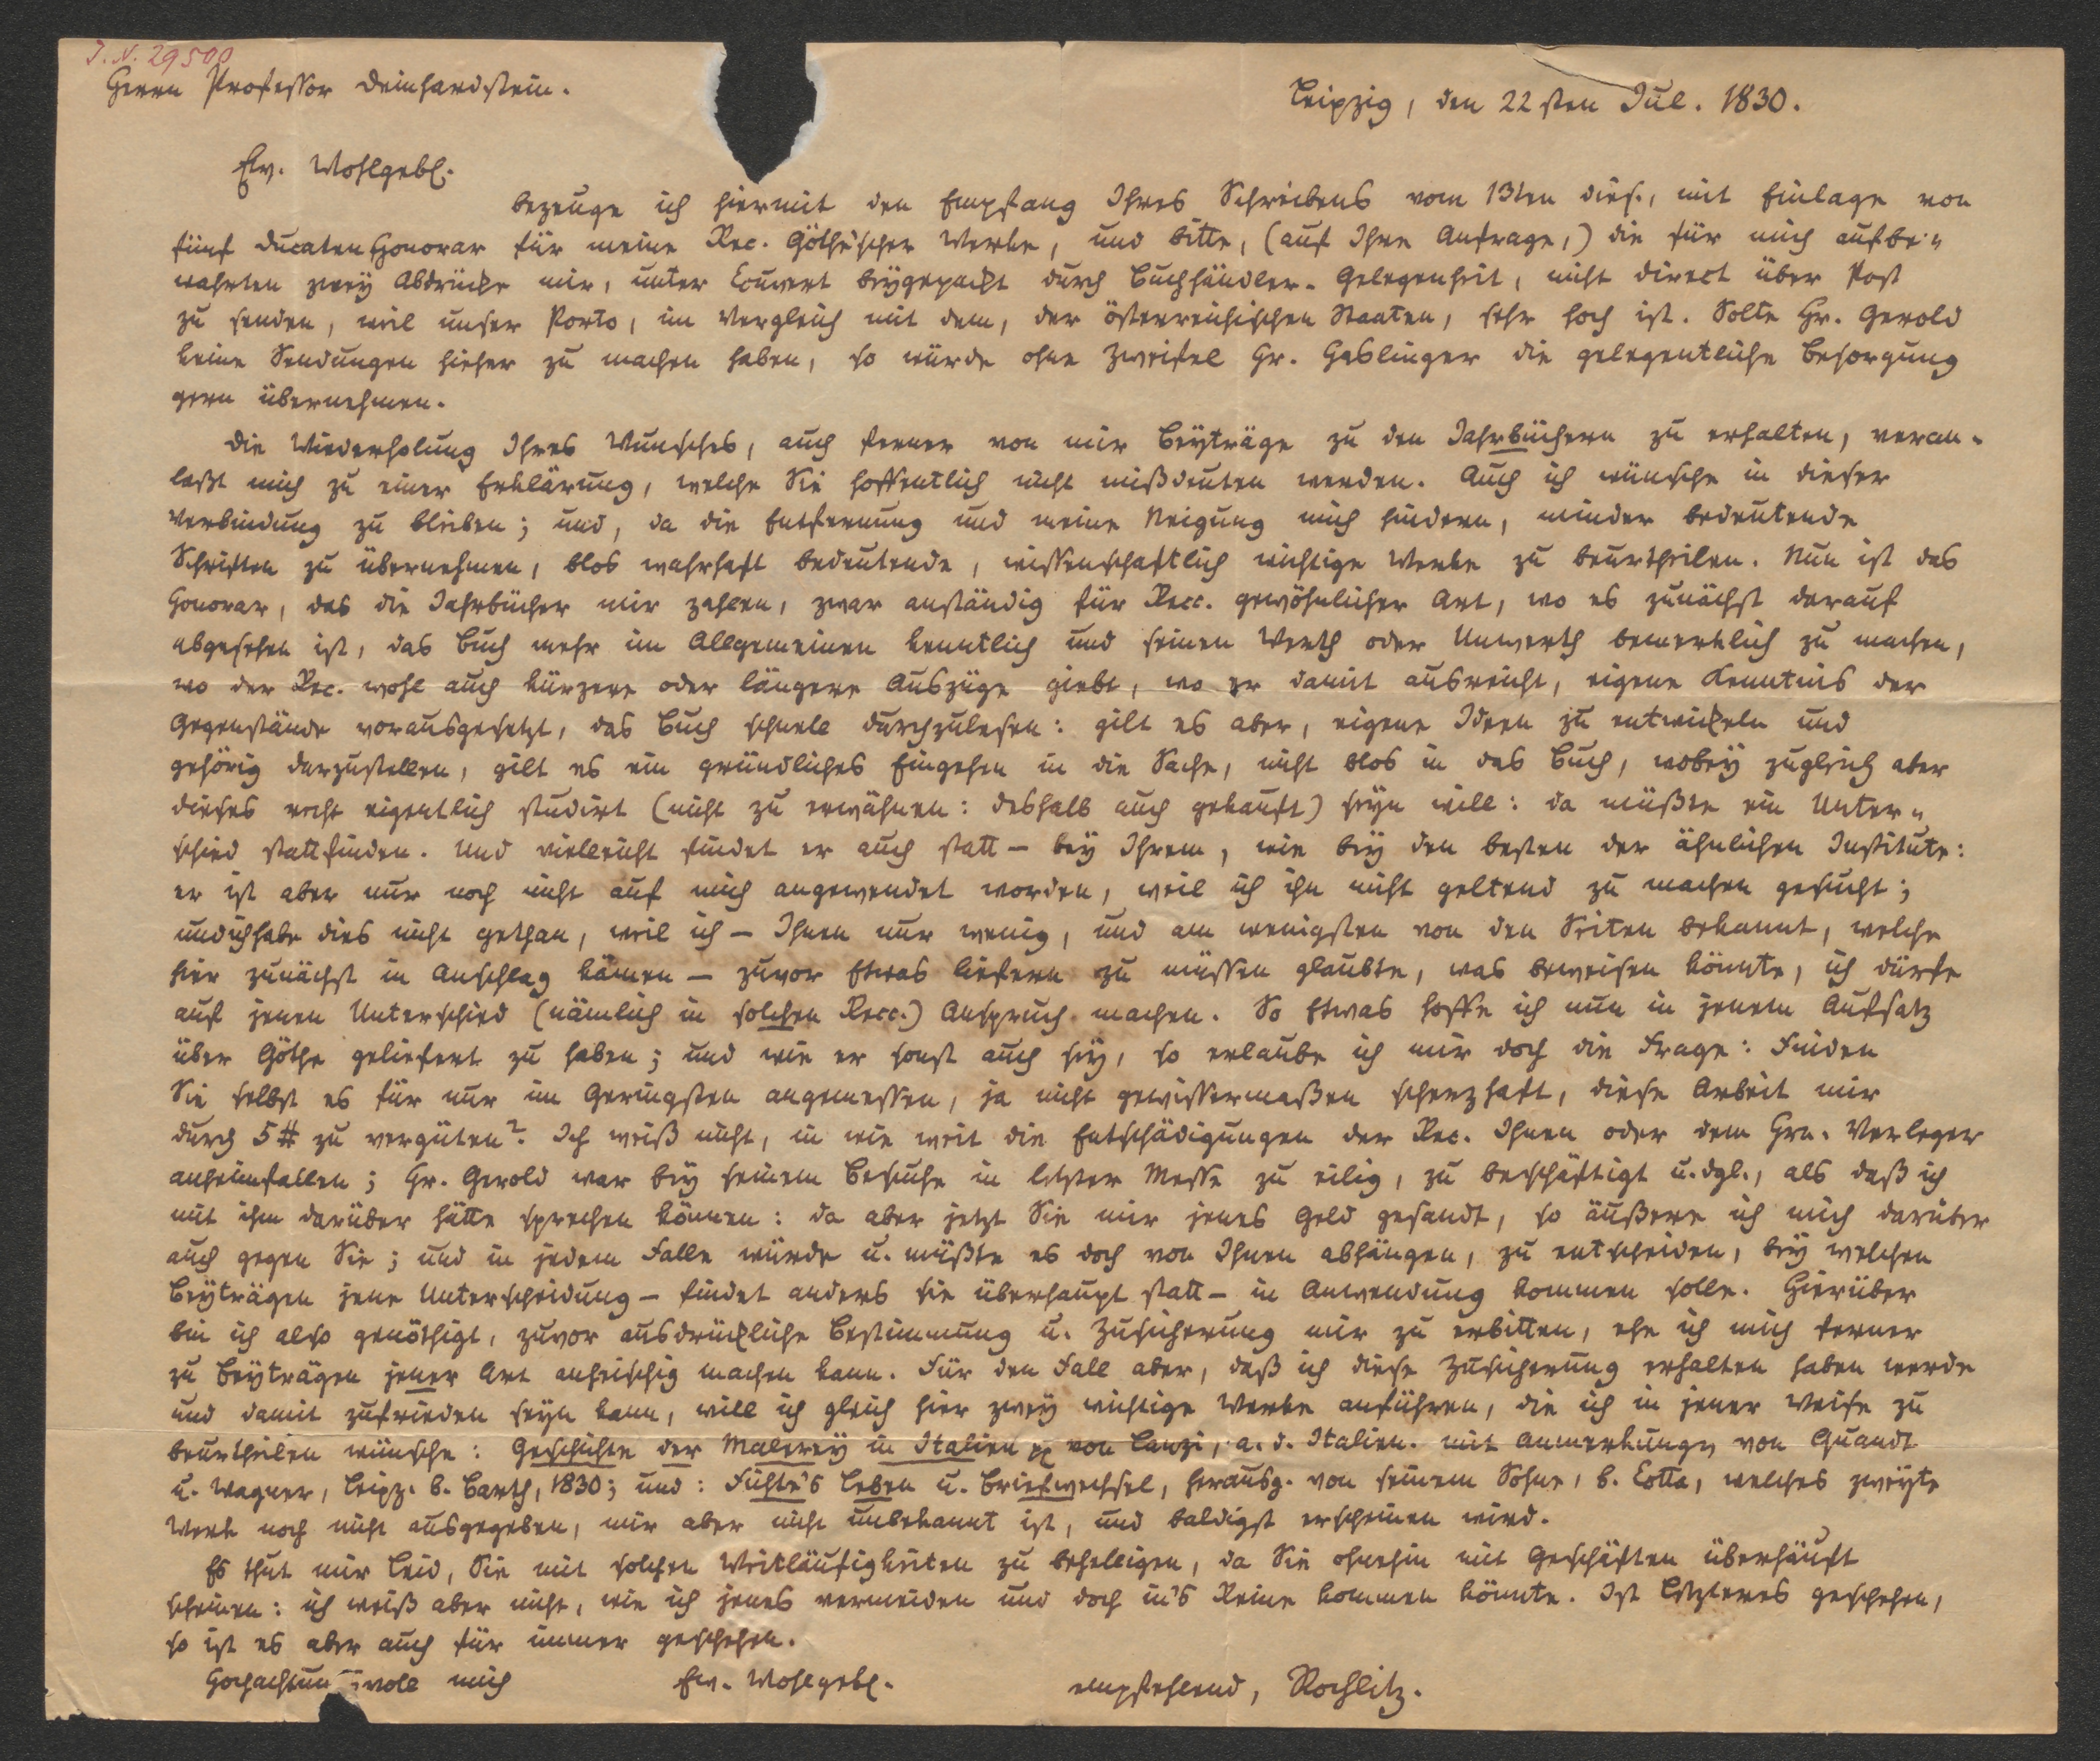 J. N. 29500
Herrn Professor Deinhardstein.
Leipzig, den 22sten Jul. 1830.
Ew. Wohlgebl.
bezeuge ich hiermit den Empfang Ihres Schreibens vom 13ten dies., mit Einlage von
fünf Ducaten Honorar für meine Rec. Göthe'scher Werke, und bitte, (auf Ihre Anfrage,) die für mich aufbe-
wahrten zwey Abdrücke mir, unter Couvert beygepackt durch Buchhändler-Gelegenheit, nicht direct über Post
zu senden, weil unser Porto, im Vergleich mit dem, der österreichischen Staaten, sehr hoch ist. Solte Hr. Gerold
keine Sendungen hieher zu machen haben, so würde ohne Zweifel Hr. Haslinger die gelegentliche Besorgung
gern übernehmen.
Die Wiederholung Ihres Wunsches, auch ferner von mir Beyträge zu den Jahrbüchern zu erhalten, veran-
laßt mich zu einer Erklärung, welche Sie hoffentlich nicht mißdeuten werden. Auch ich wünsche in dieser
Verbindung zu bleiben; und, da die Entfernung und meine Neigung mich hindern, minder bedeutende
Schriften zu übernehmen, blos wahrhaft bedeutende, wissenschaftlich wichtige Werke zu beurtheilen. Nun ist das
Honorar, das die Jahrbücher mir zahlen, zwar anständig für Recc. gewöhnlicher Art, wo es zunächst darauf
abgesehen ist, das Buch mehr im Allgemeinen kenntlich und seinen Werth oder Unwerth bemerklich zu machen,
wo der Rec. wohl auch kürzere oder längere Auszüge giebt, wo er damit ausreicht, eigene Kenntnis der
Gegenstände vorausgesetzt, das Buch schnell durchzulesen: gilt es aber, eigene Ideen zu entwickeln und
gehörig darzustellen, gilt es ein gründliches Eingehen in die Sache, nicht blos in das Buch, wobey zugleich aber
dieses recht eigentlich studirt (nicht zu erwähnen: deshalb auch gekauft) seyn will: da müßte ein Unter-
schied stattfinden. Und vielleicht findet er auch statt - bey Ihrem, wie bey den besten der ähnlichen Institute:
er ist aber nur noch nicht auf mich angewendet worden, weil ich ihn nicht geltend zu machen gesucht;
und ich habe dies nicht gethan, weil ich - Ihnen nur wenig, und am wenigsten von den Seiten bekannt, welche
hier zunächst in Anschlag kämen - zuvor Etwas liefern zu müssen glaubte, was beweisen könnte, ich dürfe
auf jenen Unterschied (nämlich in solchen Recc.) Anspruch machen. So Etwas hoffe ich nun in jenem Aufsatz
über Göthe geliefert zu haben; und wie er sonst auch sey, so erlaube ich mir doch die Frage: Finden
Sie selbst es für nur im Geringsten angemessen, ja nicht gewissermaßen scherzhaft, diese Arbeit mir
durch 5 # zu vergüten? Ich weiß nicht, in wie weit die Entschädigungen der Rec. Ihnen oder dem Hrn. Verleger
anheimfallen; Hr. Gerold war bey seinem Besuche in letzter Messe zu eilig, zu beschäftigt u. dgl., als daß ich
mit ihm darüber hätte sprechen können: da aber jetzt Sie mir jenes Geld gesandt, so äußere ich mich darüber
auch gegen Sie; und in jedem Falle würde u. müßte es doch von Ihnen abhängen, zu entscheiden, bey welchen
Beyträgen jene Unterscheidung - findet anders sie überhaupt statt - in Anwendung kommen solle. Hierüber
bin ich also genöthigt, zuvor ausdrückliche Bestimmung u. Zusicherung mir zu erbitten, ehe ich mich ferner
zu Beyträgen jener Art anheischig machen kann. Für den Fall aber, daß ich diese Zusicherung erhalten haben werde
und damit zufrieden seyn kann, will ich gleich hier zwey wichtige Werke anführen, die ich in jener Weise zu
beurtheilen wünsche: Geschichte der Malerey in Italien pp von Lanzi, a. d. Italien. mit Anmerkungen von Quandt
u. Wagner, Leipz. b. Barth, 1830; und: Fichte's Leben u. Briefwechsel, herausg. von seinem Sohne, b. Cotta, welches zweyte
Werk noch nicht ausgegeben, mir aber nicht unbekannt ist, und baldigst erscheinen wird.
Es thut mir Leid, Sie mit solchen Weitläufigkeiten zu behelligen, da Sie ohnehin mit Geschäften überhäuft
scheinen: ich weiß aber nicht, wie ich jenes vermeiden und doch in's Reine kommen könnte. Ist Letzteres geschehen,
so ist es aber auch für immer geschehen.
Hochachtungsvoll mich Ew. Wohlgebl. empfehlend, Rochlitz.